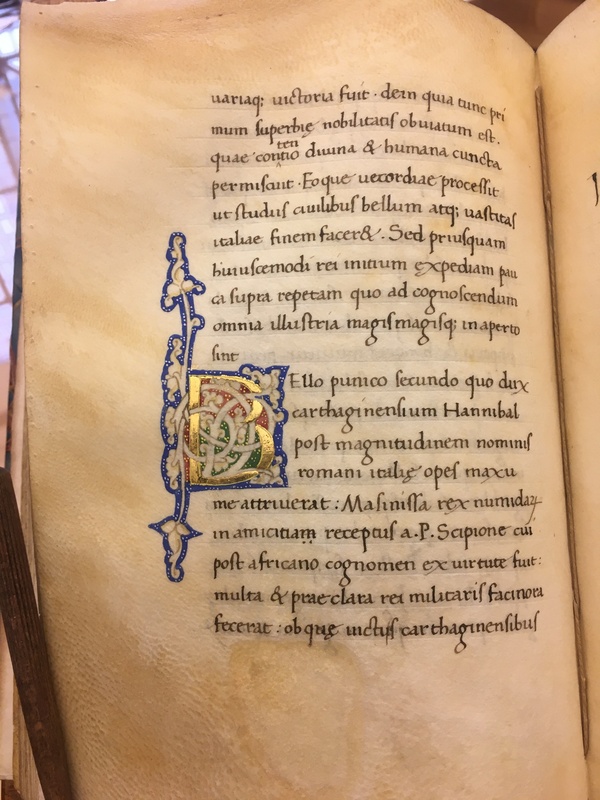 uariaq; uictoria fuit · dein quia tunc pri
mum superbię nobilitatis obuiatum est.
quae contentio diuina & humana cuncta
permiscuit · Eoque uecordiae processit
ut studiis ciuilibus bellum atq; uastitas
italiae finem facer&. Sed priusquam
huiuscemodi rei initium expediam pau
ca supra repetam quo ad cognoscendum
omnia illustria magis magisq; in aperto
sint
BEllo punico secundo quo dux
carthaginensium Hannibal
post magnitudinem nominis
romani italię opes maxu
me attriuerat : Masinissa rex numidaꝝ
in amicitiam receptus a .P. Scipione cui
post africano cognomen ex uirtute fuit :
multa & praeclara rei militaris facinora
fecerat : ob quę uictis carthaginensibus